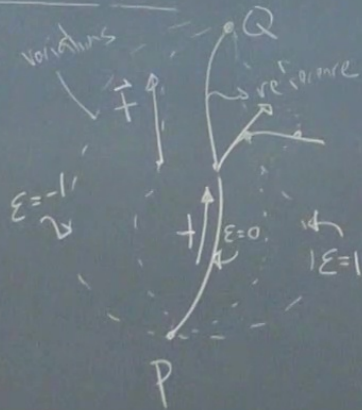 Q
variations
reference
t
ε=-1
t
ε=0
ε=1
P